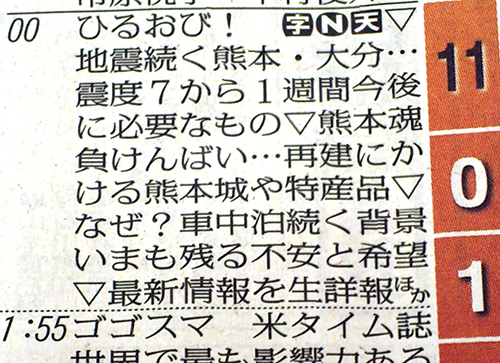 00 ひるおび！ 字N天▽
地震続く熊本・大分…
震度７から１週間今後
に必要なもの▽熊本魂
負けんばい…再建にか
ける熊本城や特産品▽
なぜ？車中泊続く背景
いまも残る不安と希望
▽最新情報を生詳報ほか
1:55 ゴゴスマ 米タイム誌
世界で最も影響力ある
11
0
1